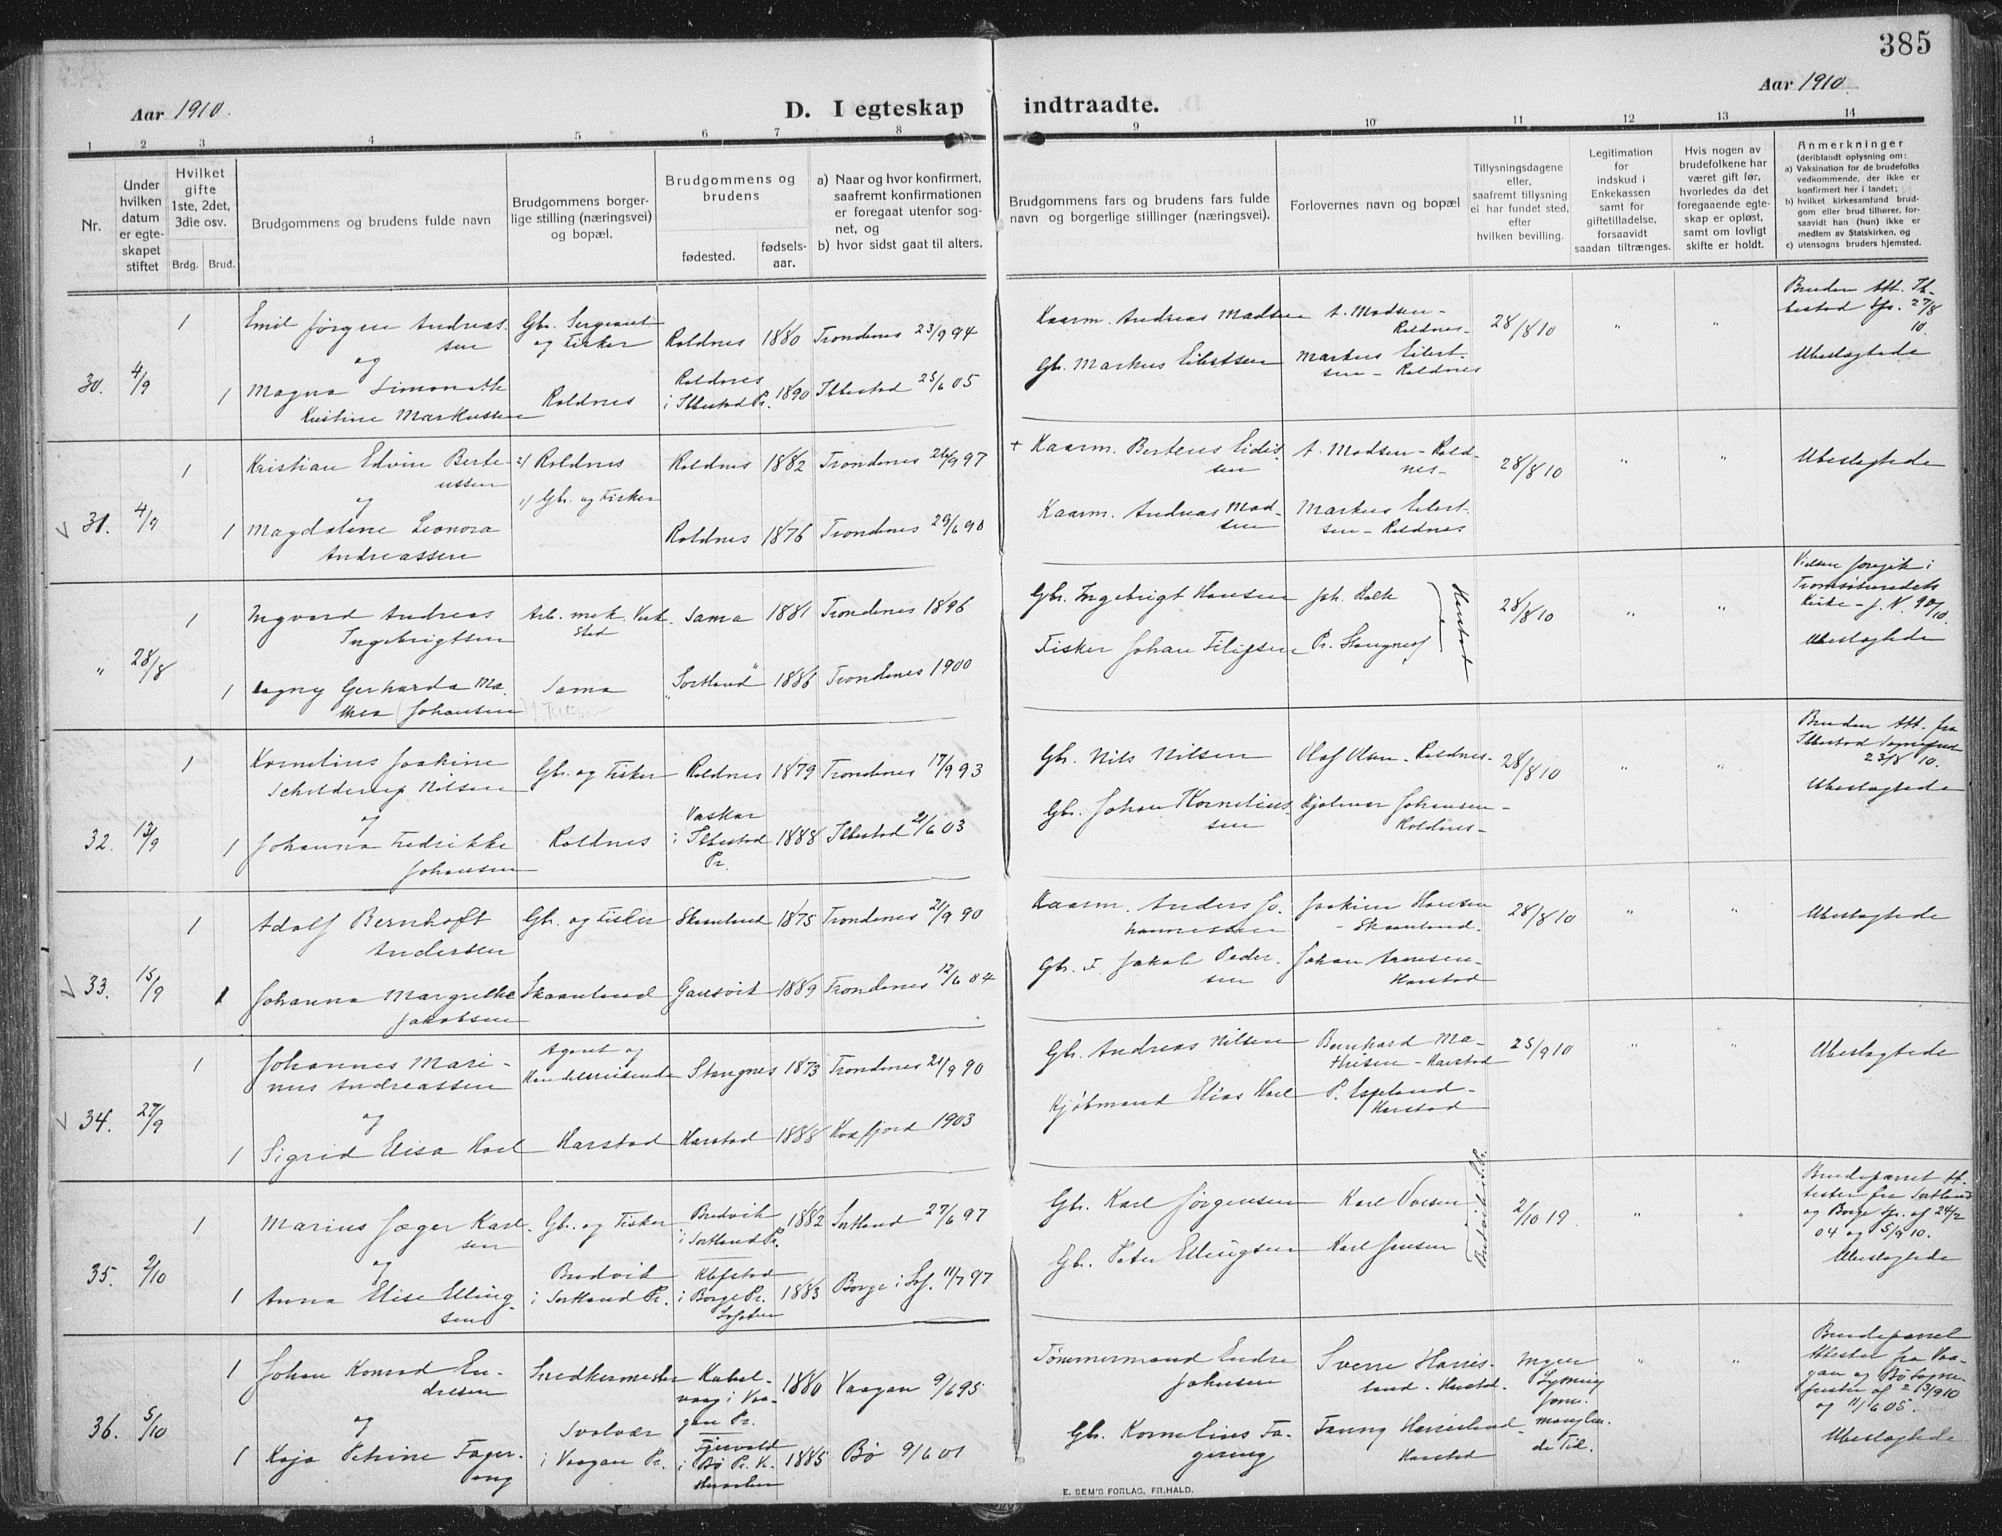 385
Aar 1910.
D. I egteskap indtraadte.
Aar 1910.
1 2 3 4 5 6 7 8 9 10 11 12 13 14
Nr.
Under hvilken datum er egteskapet stiftet
Hvilket gifte 1ste, 2det, 3die osv.
Brdg. Brud.
Brudgommens og brudens fulde navn
Brudgommens borgerlige stilling (næringsvei) og bopæl.
Brudgommens og brudens
fødested.
fødselsaar.
a) Naar og hvor konfirmert, saafremt konfirmationen er foregaat utenfor sognet, og
b) hvor sidst gaat til alters.
Brudgommens fars og brudens fars fulde navn og borgerlige stillinger (næringsvei).
Forlovernes navn og bopæl
Tillysningsdagene eller, saafremt tillysning ei har fundet sted, efter hvilken bevilling.
Legitimation for indskud i Enkekassen samt for giftetilladelse, forsaavidt saadan tiltrænges.
Hvis nogen av brudefolkene har været gift før, hvorledes da det foregaaende egteskap er opløst, samt om lovligt skifte er holdt.
Anmerkninger
(deriblandt oplysning om:
a) Vaksination for de brudefolks vedkommende, der ikke er konfirmert her i landet;
b) hvilket kirkesamfund brudgom eller brud tilhører, forsaavidt han (hun) ikke er medlem av Statskirken, og
c) utensogns bruders hjemsted.
30. 4/9
1 Emil Jørgen Andreassen Gbr. Sergeant og Fisker Roldnes 1880 Trondenes 23/9 94 Kaarm. Andreas Madsen A. Madsen - Roldnes - 28/8 10 " " Bruden att. Ibbestad Spr. 27/8 10.
og
1 Magna Simonette Kristine Markussen Roldnes Roldnes i Ibbestad Pr. 1890 Ibbestad 25/6 05 Gbr. Markus Eilertsen Markus Eilertsen - Roldnes Ubeslegtede
31. 4/9
1 Kristian Edvin Berteussen 2) Roldnes Roldnes 1882 Trondenes 26/9 97 + Kaarm. Berteus Eidissen A. Madsen - Roldnes - 28/8 10 " " Ubeslegtede
og 1) Gbr. og Fisker
1 Magdalene Leonora Andreassen Roldnes 1876 Trondenes 29/6 90 Kaarm. Andreas Madsen Markus Eilertsen - Roldnes
" 28/8
1 Ingvard Andreas Ingebrigtsen Arb. mek. Verksted Sama 1881 Trondenes 1896 Gbr. Ingebrigt Hansen Joh. Holk Harstad 28/8 10 " " Vielsen foregik i Tromsösundets Kirke - J. N. 90/10.
1 Dagny Gerharda Mathea (Johansen) Sama "Sortland" 1886 Trondenes 1900 Fisker Johan Filipsen Pr. Stangnes Ubeslegtede
32. 13/9
1 Kornelius Joakim Schelderup Nilsen Gbr. og Fisker Roldnes 1879 Trondenes 17/9 93 Gbr. Nils Nilsen Olaf Olsen - Roldnes - 28/8 10 " " Bruden att. fra Ibbestad Sognepr. 23/8 10.
og
1 Johanna Fedrikke Johansen Roldnes Vaskar i Ibbestad Pr. 1888 Ibbestad 21/6 03 Gbr. Johan Korneliussen Hjalmar Johansen - Roldnes - Ubeslegtede
33. 15/9
1 Adolf Bernhoft Andersen Gbr. og Fisker Skaanland 1875 Trondenes 21/9 90 Kaarm. Anders Johannessen Joakim Hansen - Skaanland. 28/8 10 " " Ubeslegtede
1 Johanna Margrethe Jakobsen Skaanland Gausvik 1889 Trondenes 12/6 04 Gbr. F. Jakob Pedersen Johan Arnesen - Harstad
34. 27/9
1 Johannes Marinus Andreassen Agent og Handelsreisende Stangnes 1873 Trondenes 21/9 90 Gbr. Andreas Nilsen Bernhard Mathisen - Harstad 25/9 10 " " Ubeslegtede
og
1 Sigrid Elisa Hoel Harstad Harstad 1888 Kvæfjord 1903 Kjøbmand Elias Hoel P. Espeland - Harstad
35. 2/10
1 Marius Jæger Karlsen Gbr. og Fisker Bredvik i Sortland Pr. 1882 Sortland 27/6 97 Gbr. Karl Jørgensen Karl Olsen Bredvik i S. Pr. 2/10 19. " " Brudeparret attester fra Sortland og Borge Spr. af 24/2 04 og 5/9 10.
og
1 Anna Elise Ellingsen Bredvik i Sortland Pr. Klefstad i Borge Pr. Lofoten 1883 Borge i Lof. 11/7 97 Gbr. Peter Ellingsen Karl Jensen Ubeslegtede
36. 5/10
1 Johan Konrad Endresen Snedkermester Kabelvaag i Vaagan Pr. 1880 Vaagan 9/6 95 Tømmermand Endre Johnsen Sverre Harrisland. Harstad. Ingen Lysning forn. manglende Tid. " " Brudeparret attester fra Vaagan og Bø Sognepræster af 23/9 10 og 11/6 05.
og
1 Kaja Petrine Fagerong Svolvær i Vaagan Pr. Fjærvold i Bø Pr. 1885 Bø 9/6 01 Gbr. Kornelius Fagering Fanny Harrisland - Harstad Ubeslegtede
E. SEM'S FORLAG, FR.HALD.